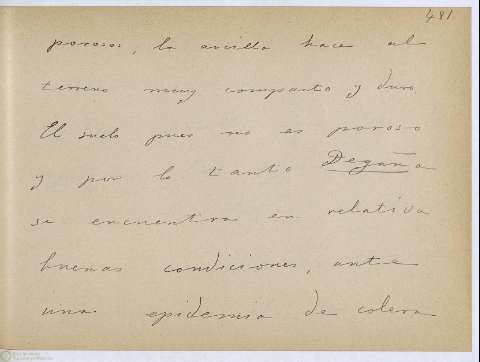 481
porosos, la arcilla hace al
terreno muy compacto y duro
El suelo pues no es poroso
y por lo tanto Degaña
se encuentra en relativa
buenas condiciones, ante
una epidemia de colera